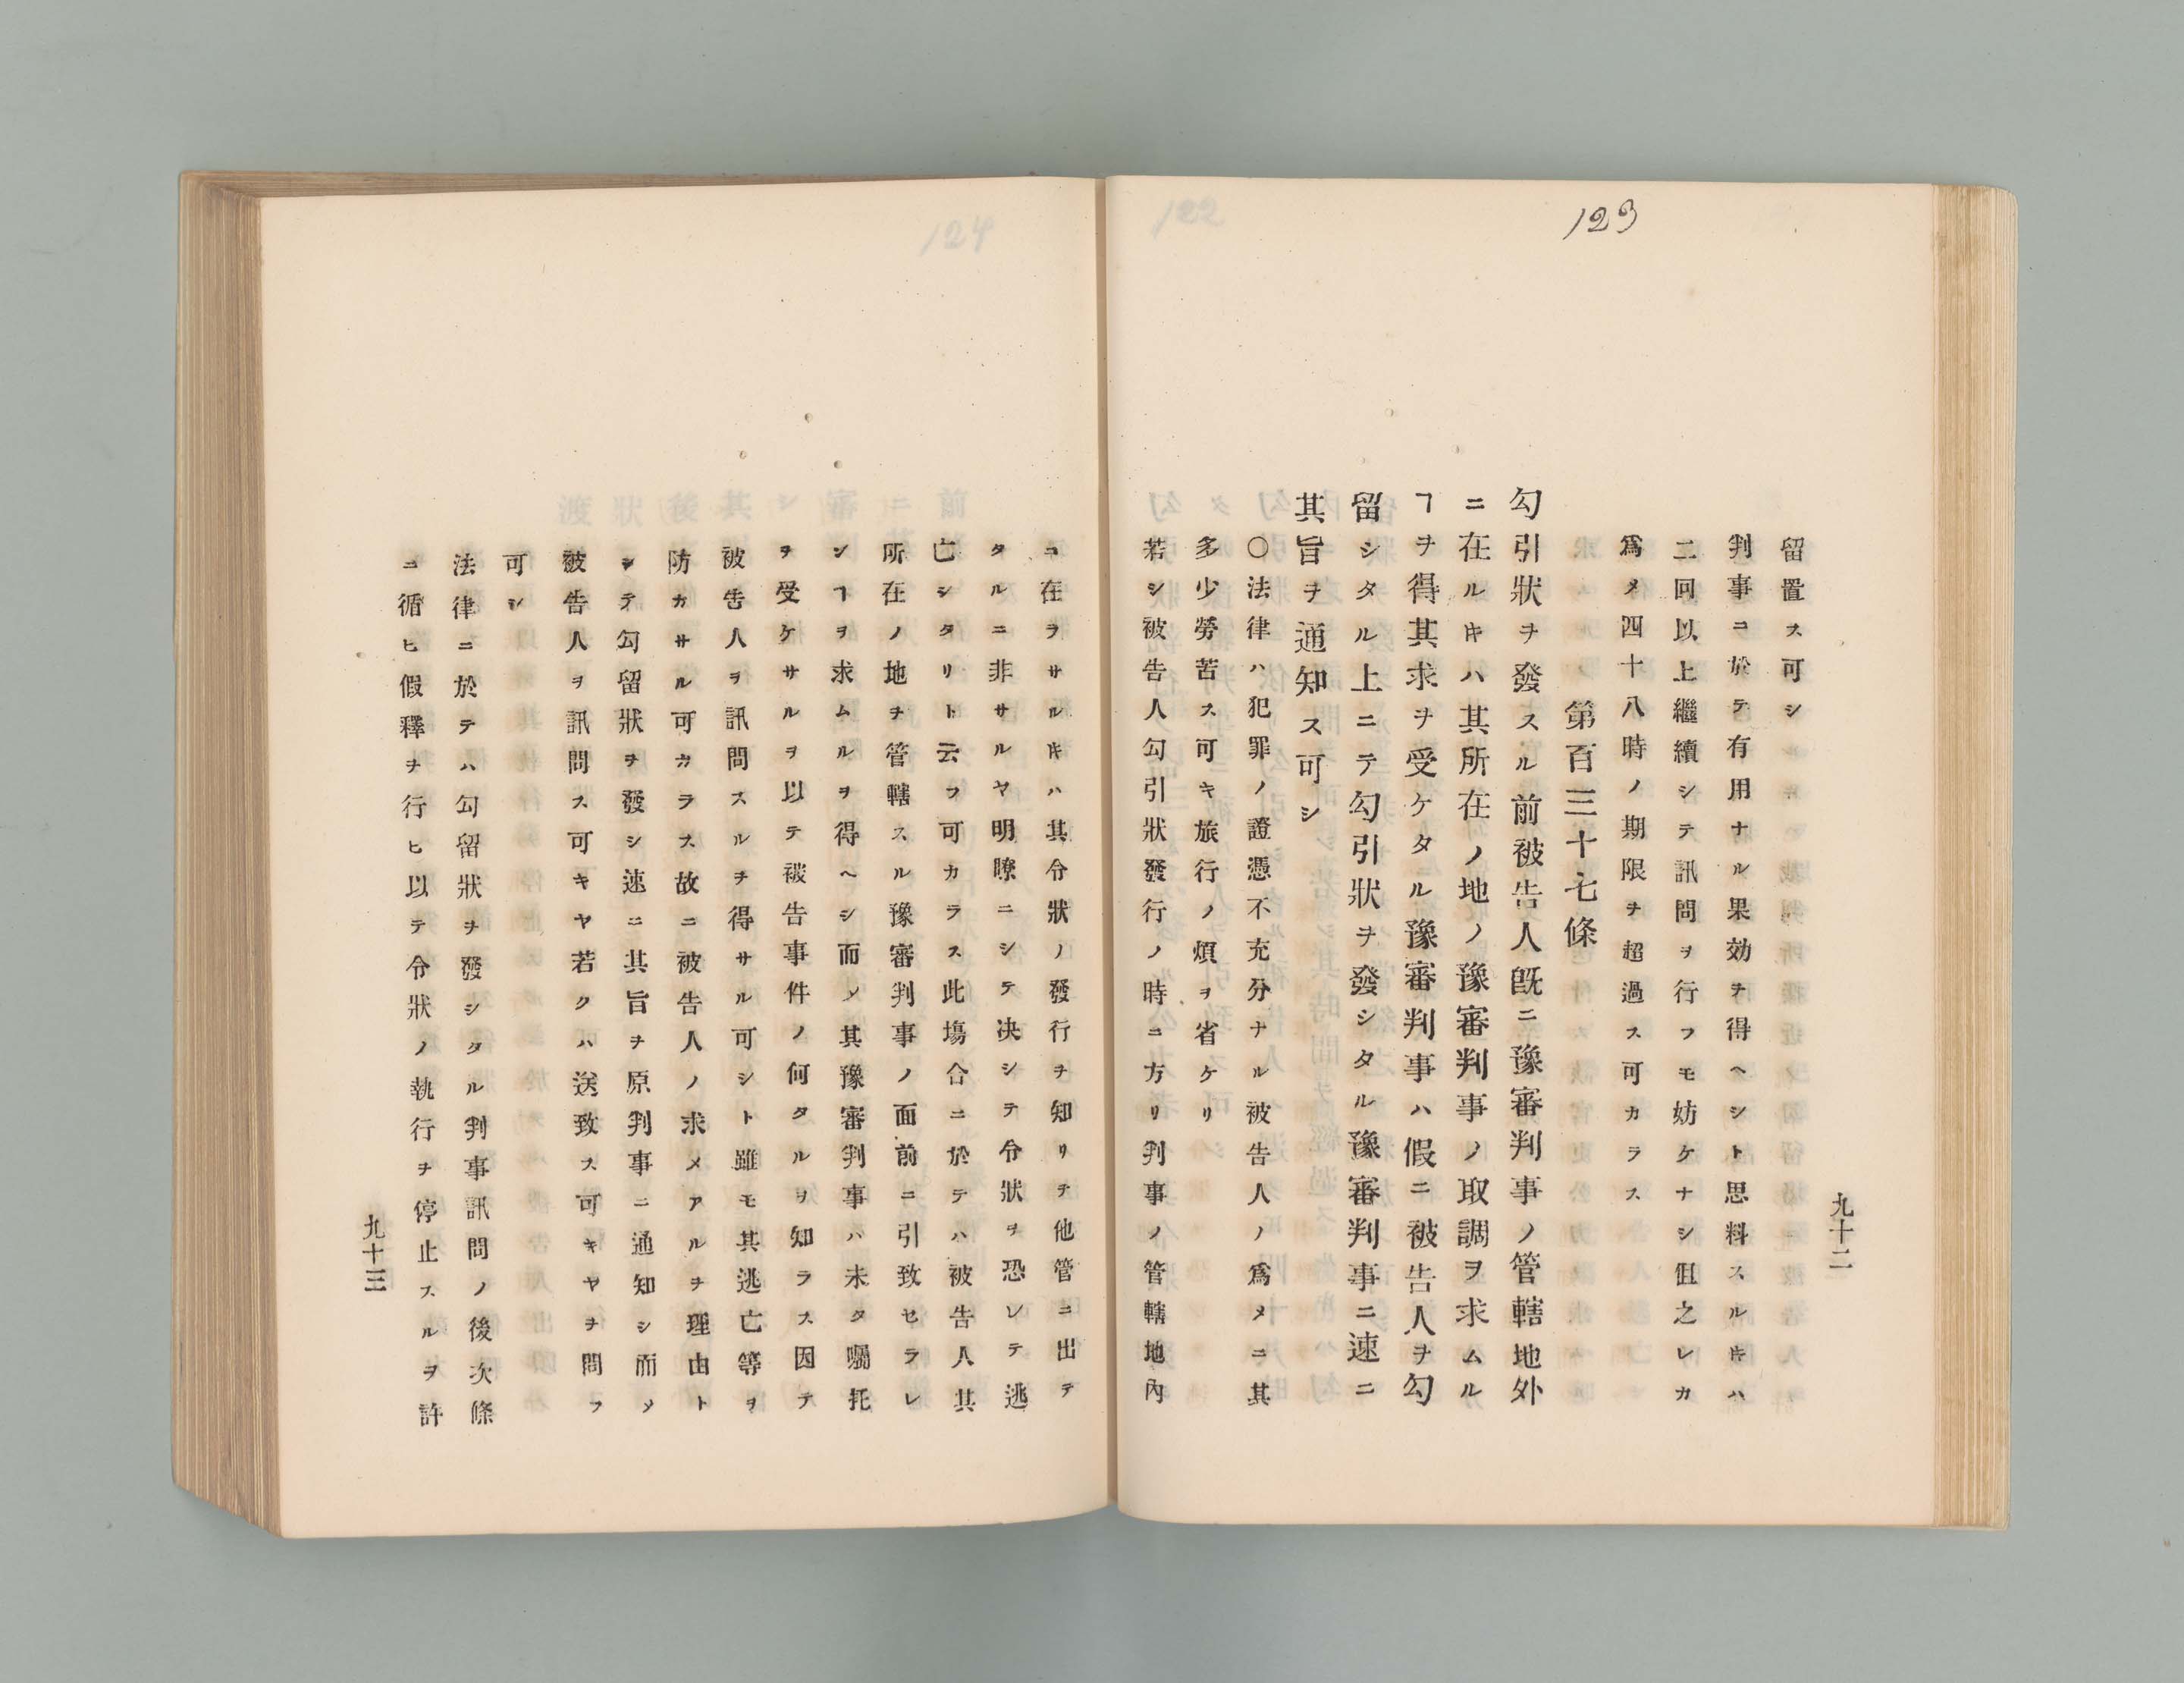 123
九十二
留置ス可シ
判事ニ於テ有用ナル果効ヲ得ヘシト思料スルキハ
二回以上繼續シテ訊問ヲ行フモ妨ケナシ但之レカ
爲メ四十八時ノ期限ヲ超過ス可カラス
第百三十七條
勾引狀ヲ發スル前被告人既ニ豫審判事ノ管轄地外
ニ在ルキハ其所在ノ地ノ豫審判事ノ取調ヲ求ムル
ヿヲ得其求ヲ受ケタル豫審判事ハ假ニ被告人ヲ勾
留シタル上ニテ勾引狀ヲ發シタル豫審判事ニ速ニ
其旨ヲ通知ス可シ
○法律ハ犯罪ノ證憑不充分ナル被告人ノ爲メニ其
多少勞苦ス可キ旅行ノ煩ヲ省ケリ
若シ被告人勾引狀發行ノ時ニ方リ判事ノ管轄地內
122
124
ニ在ラサルキハ其令狀ノ發行ヲ知リテ他管ニ出テ
タルニ非サルヤ明瞭ニシテ决シテ令狀ヲ恐レテ逃
亡シタリト云フ可カラス此塲合ニ於テハ被告人其
所在ノ地ヲ管轄スル豫審判事ノ面前ニ引致セラレ
ンヿヲ求ムルヲ得ヘシ而メ其豫審判事ハ未タ囑托
ヲ受ケサルヲ以テ被告事件ノ何タルヲ知ラス因テ
被告人ヲ訊問スルヲ得サル可シト雖モ其逃亡等ヲ
防カサル可カラス故ニ被告人ノ求メアルヲ理由ト
シテ勾留狀ヲ發シ速ニ其旨ヲ原判事ニ通知シ而メ
被告人ヲ訊問ス可キヤ若クハ送致ス可キヤヲ問フ
可シ
法律ニ於テハ勾留狀ヲ發シタル判事訊問ノ後次條
ニ循ヒ假釋ヲ行ヒ以テ令狀ノ執行ヲ停止スルヲ許
九十三